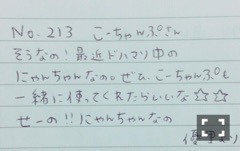 No. 213 こーちゃんぷさん
そうなの!最近ドハマリ中の
にゃんちゃんなの。ぜひ、こーちゃんぷも
一緒に使ってくれたらいいな☆☆
せーの!!にゃんちゃんなの